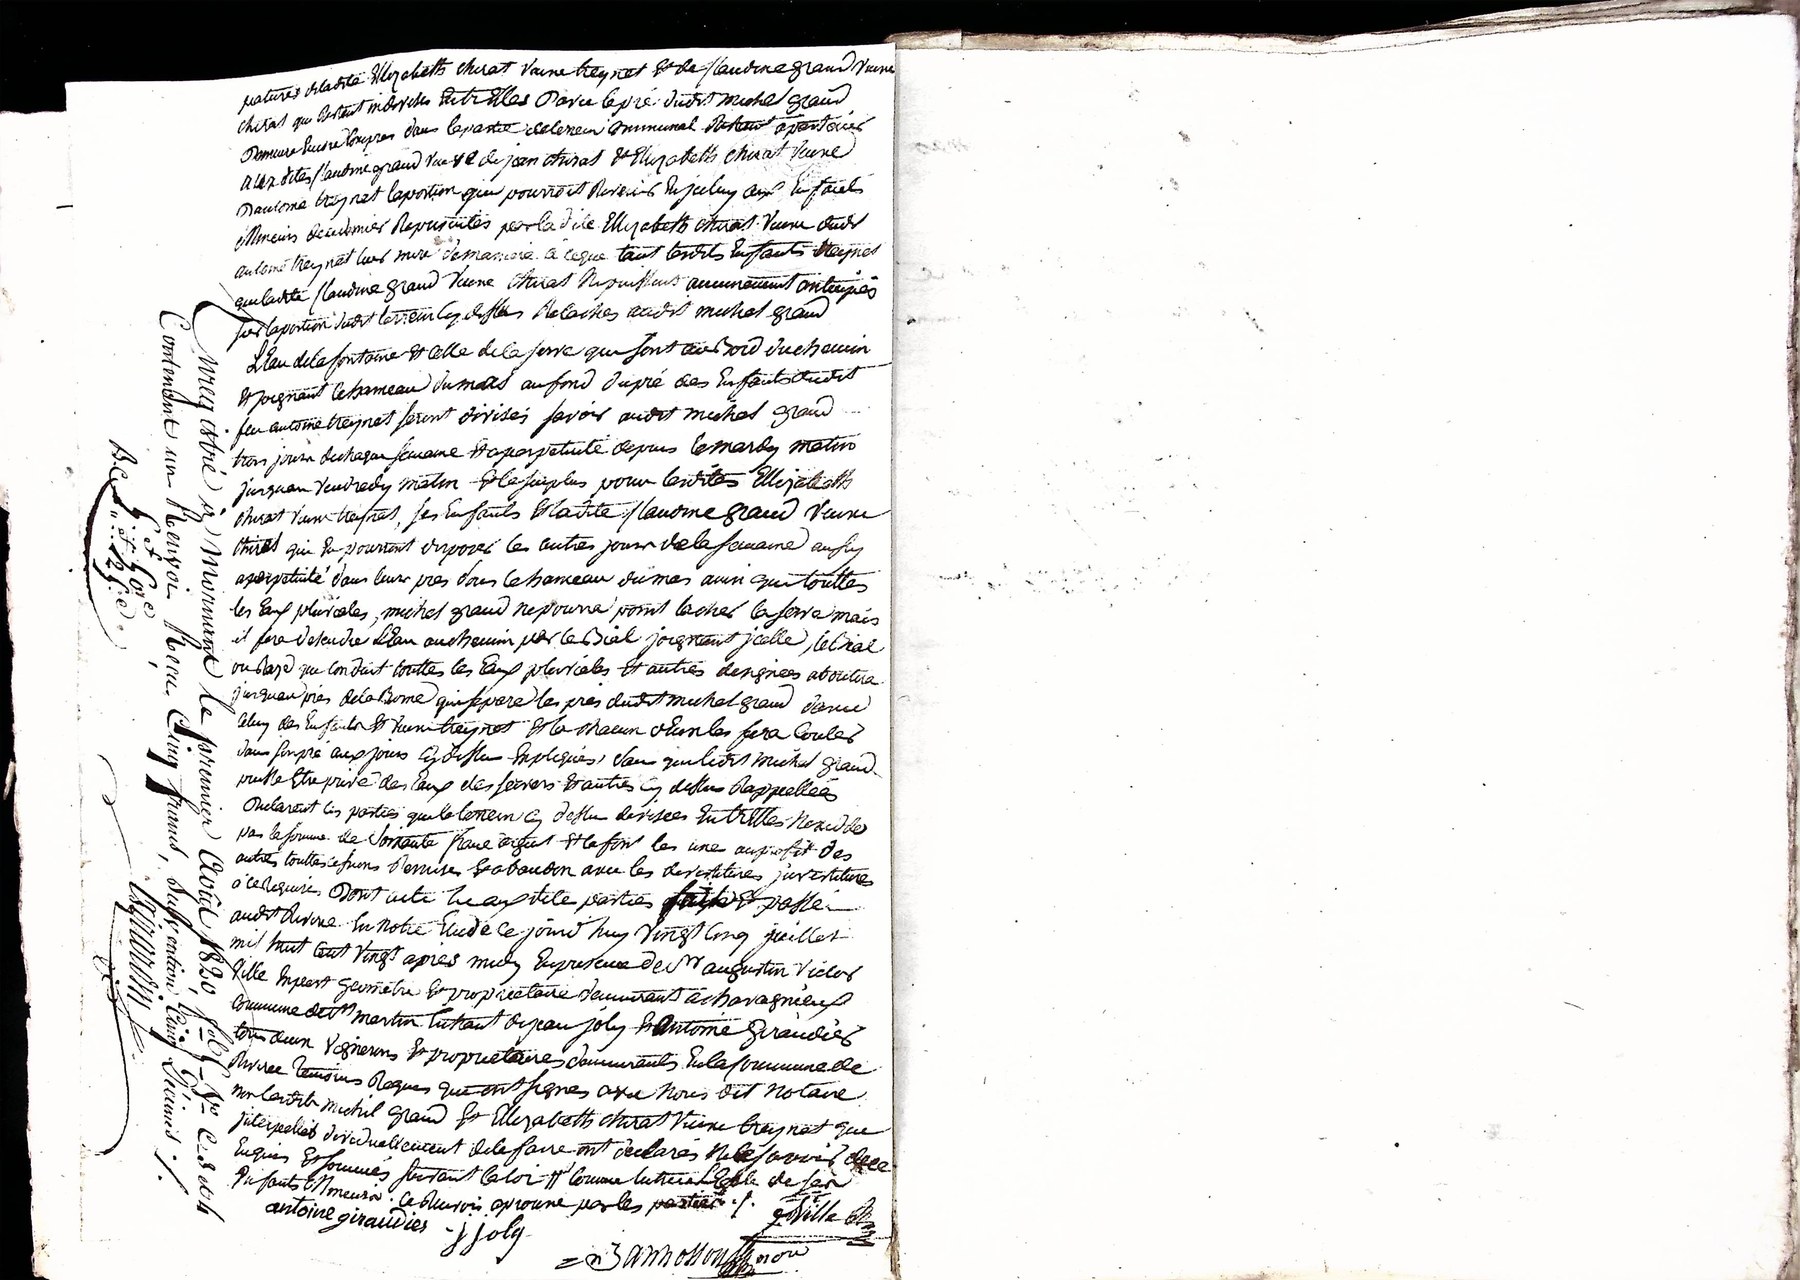 patures de ladite Elizabeth chirat veuve treynet et de Claudine graud veuve
chirat qui restent indivises entr'elles Davec le pré dudit michel graud
Demeure encore compris dans la partie de terrein communal restant apartenir
aux dites Claudine graud veuve de jean chirat et Elizabeth chirat veuve
D'antoine treynet la portion qui pourroit revenir en jceluy aux Enfants
mineurs de ce dernier Représentés par la dite Elizabeth chirat veuve dudit
antoine treynet leur mere de maniere à ce que tant lesdits Enfants treynet
que ladite Claudine graud veuve chirat ne puissent aucunement anticiper
sur la portion dudit terrein cy dessus relachée audit michel graud
L'Eau de la fontaine et celle de la serve qui sont au Bord du chemin
et joignant le hameau du mas au fond du pré des Enfants dudit
feu antoine treynet seront divisés savoir audit michel graud
trois jours de chaque semaine et a perpetuité depuis le mardy matin
jusquau vendredy matin et le surplus pour lesdites Elizabeth
chirat veuve treynet, ses Enfants et ladite Claudine graud veuve
chirat qui en pourront disposer les autres jours de la semaine aussy
a perpetuité dans leurs pres sous le hameau du mas ainsi que touttes
les Eaux pluviales, michel graud ne pourra point lacher la serve mais
il fera descendre l'Eau au chemin par le Bial joignant jcelle, le Bial
ou Razé qui conduit touttes les Eaux pluviales et autres designées aboutira
jusquau près de la Borne qui separe les prés dudit michel graud d'avec
celuy des Enfants et veuve treynet et la chacun d'Eux les fera couler
dans son pré aux jours cy dessus Expliqués, sans que ledit michel graud
puisse Etre privé des Eaux des serves et autres cy dessus Rappellées
Declarent les parties que le terrein cy dessus divisées Entr'Elles n'excede
pas la somme de soixante francs et se font les unes au profit des
autres touttes cessions Demises et abandon avec les devestitures jnvestitures
à ce Requises Dont acte lu aux dites parties fait et passé
audit Rivirie En notre Etude ce jourd'huy Vingt Cinq juillet
mil huit Cent Vingt après midy En presence de Sr augustin Victor
Ville Expert geometre et proprietaire demeurant à chavagnieux
Commune de St martin Et de jean joly et antoine giraudier
tous deux Vignerons et proprietaires demeurants En la Commune de
Rivirie temoins Requis qui ont signés avec Nous dit Notaire
non lesdits michel graud et Elizabeth chirat veuve treynet qui
jnterpellés jndividuellement de le faire ont declarés ne le savoir de ce
Enquis et sommés suivant la loi # Comme tutrice legale de ses
Enfants mineurs. Ce Renvoi aprouvé par les parties ./.
antoine giraudier
j joly
Ville
Enregistré à Mornant le premier août 1820, fol.
Contenant un Renvoi Reçu Cinq francs, subvention Cinquante Centimes ./.